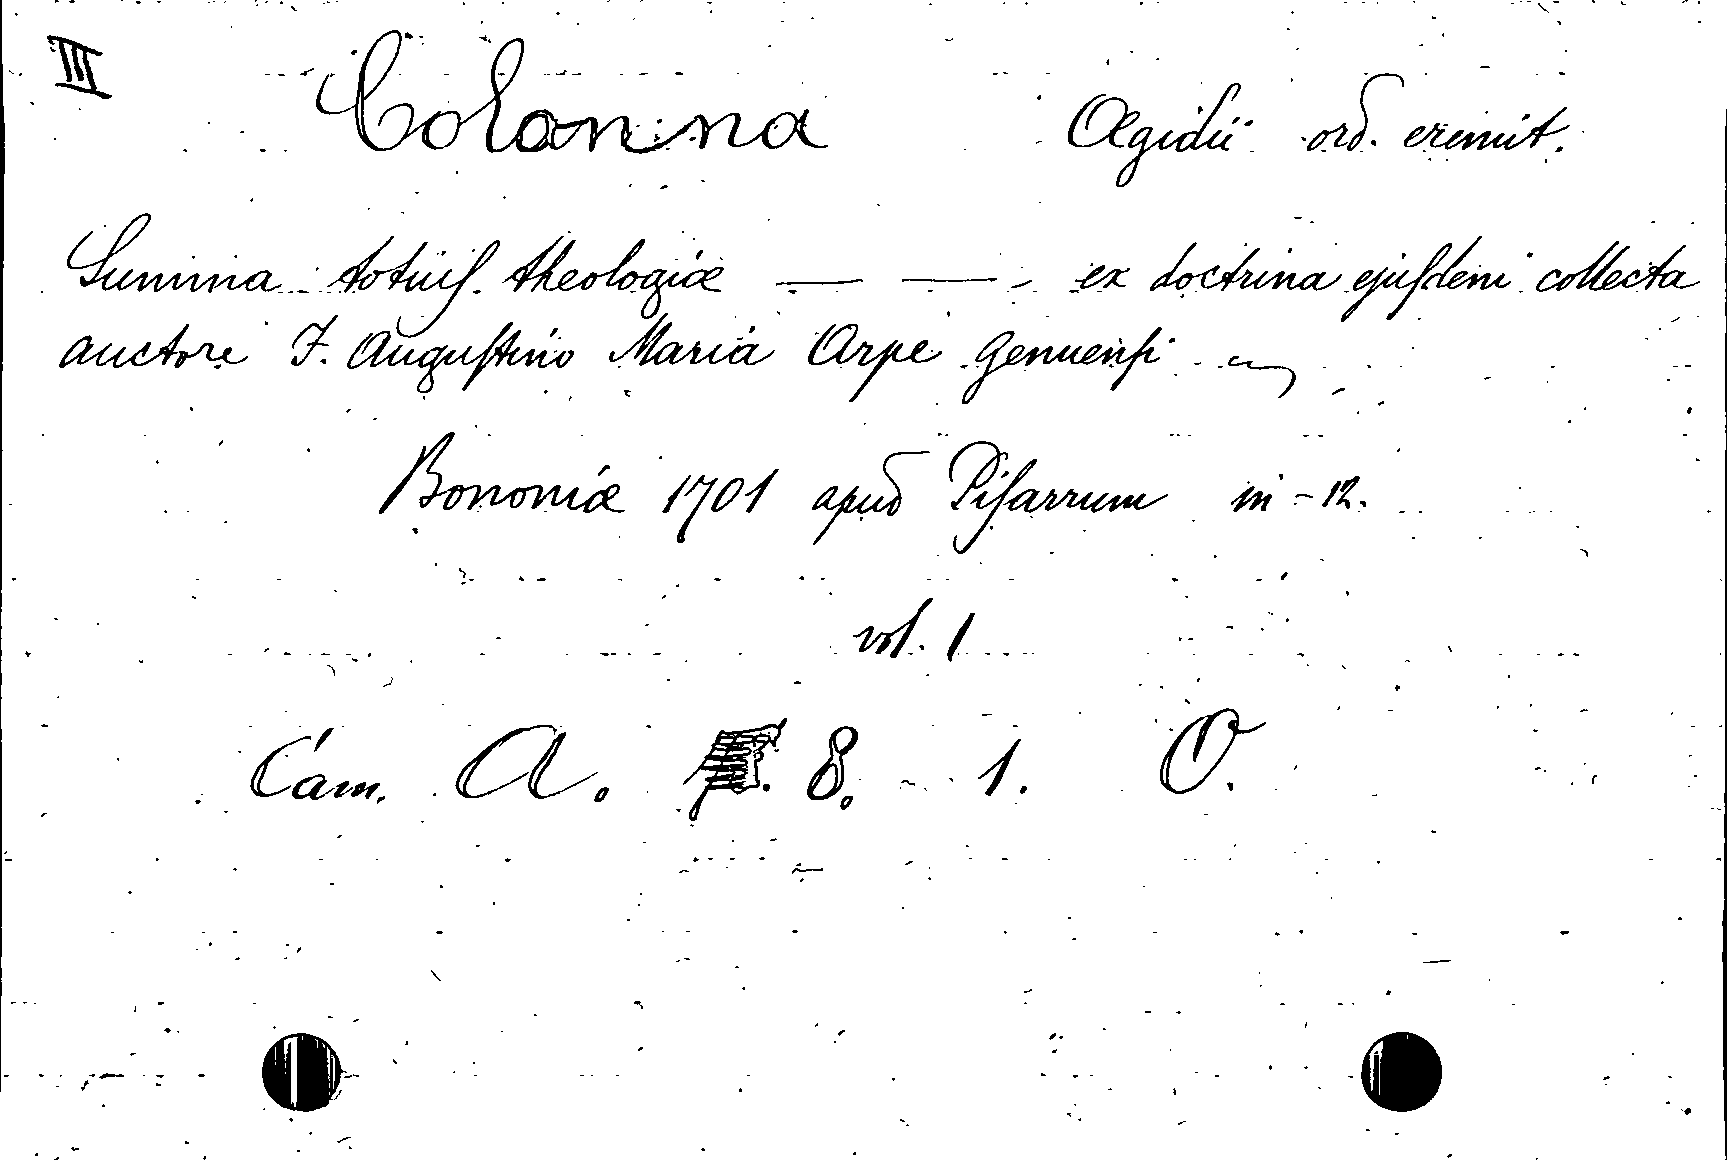 III Colonna Ægidii ord. eremit.
Summa totiuſ. theologiæ — — - ex doctrina ejuſdem collecta
auctore F. Auguſtino Maria Arpe Genuenſi
Bononiæ 1701 apud Piſarrum in-12.
vol. 1
Cam. A. 8. 1. O.